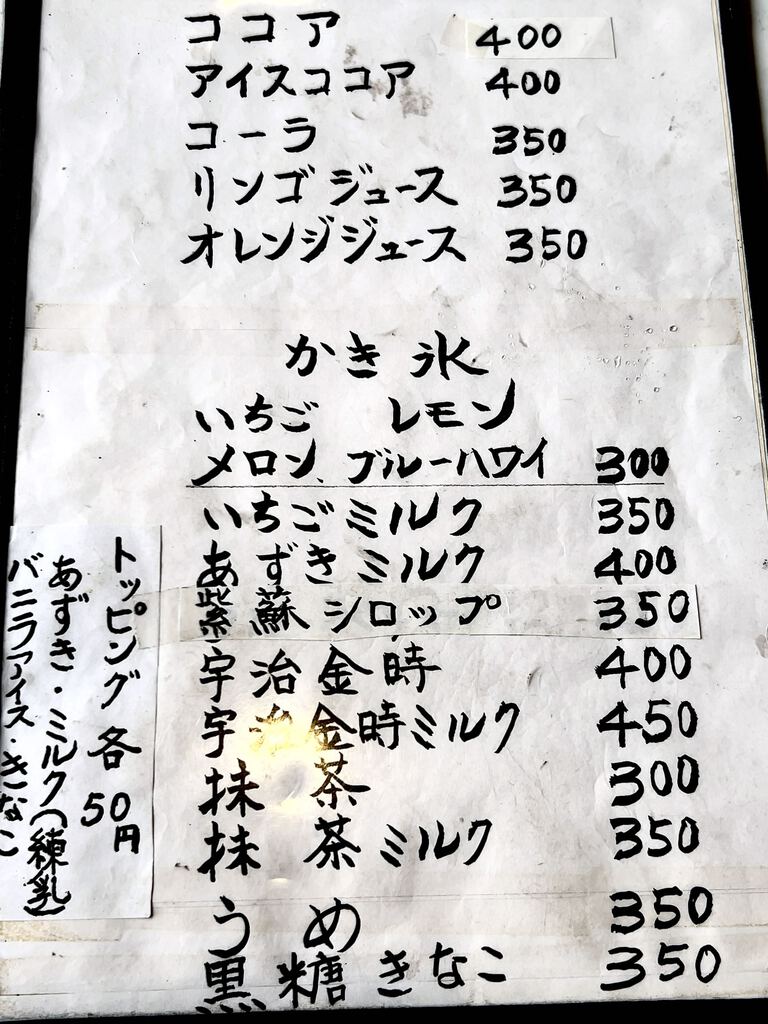 ココア 400
アイスココア 400
コーラ 350
リンゴジュース 350
オレンジジュース 350
かき氷
いちご レモン
メロン ブルーハワイ 300
いちごミルク 350
あずきミルク 400
紫蘇シロップ 350
宇治金時 400
宇治金時ミルク 450
抹茶 300
抹茶ミルク 350
うめ 350
黒糖きなこ 350
トッピング各50円
あずき・ミルク(練乳)
バニラアイス・きなこ